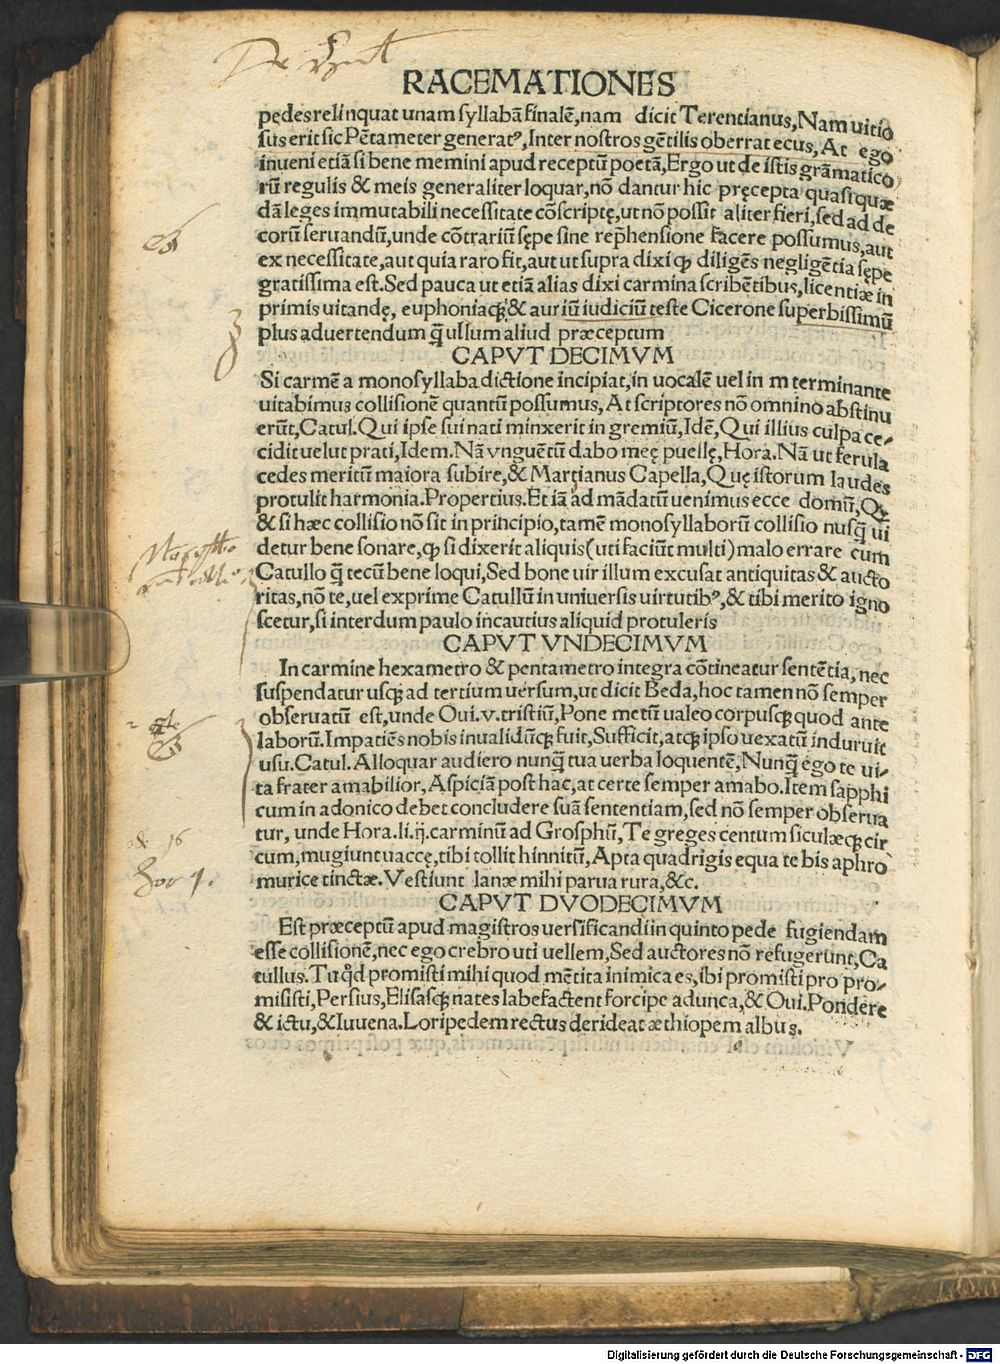 RACEMATIONES
pedes relinquat unam syllabā finalē, nam dicit Terentianus, Nam uitio
sus erit sic Pētameter generatꝰ, Inter nostros gētilis oberrat ecus, At ego
inueni etiā si bene memini apud receptū poetā, Ergo ut de istis grāmatico
rū regulis & meis generaliter loquar, nō dantur hic pręcepta quasi quæ
dā leges immutabili necessitate cōscriptę, ut nō possit aliter fieri, sed ad de
corū seruandū, unde cōtrariū sępe sine rep̄hensione facere possumus, aut
ex necessitate, aut quia raro fit, aut ut supra dixi ꝙ diligēs negligētia sępe
gratissima est. Sed pauca ut etiā alias dixi carmina scribētibus, licentiæ in
primis uitandę, euphoniaꝗ; & auriū iudiciū teste Cicerone superbissimū
plus aduertendum q̄ ullum aliud præceptum
CAPVT DECIMVM
Si carmē a monosyllaba dictione incipiat, in uocalē uel in m terminante
uitabimus collisionē quantū possumus, At scriptores nō omnino abstinu
erūt, Catul. Qui ipse sui nati minxerit in gremiū, Idē, Qui illius culpa ce-
cidit uelut prati, Idem. Nā vnguētū dabo meę puellę, Hora. Nā ut ferula
cedes meritū maiora subire, & Martianus Capella, Quę istorum laudes
protulit harmonia. Propertius. Et iā ad mādatū uenimus ecce domū, Qꝫ
& si hæc collisio nō sit in principio, tamē monosyllaborū collisio nusq̄ ui
detur bene sonare, ꝙ si dixerit aliquis (uti faciūt multi) malo errare cum
Catullo q̄ tecū bene loqui, Sed bone uir illum excusat antiquitas & aucto
ritas, nō te, uel exprime Catullū in uniuersis uirtutibꝰ, & tibi merito igno
scetur, si interdum paulo incautius aliquid protuleris
CAPVT VNDECIMVM
In carmine hexametro & pentametro integra cōtineatur sentētia, nec
suspendatur usꝗ; ad tertium uersum, ut dicit Beda, hoc tamen nō semper
obseruatū est, unde Oui. v. tristiū, Pone metū ualeo corpusꝗ; quod ante
laborū. Impatiēs nobis inualidūꝗ; fuit, Sufficit, atꝗ; ipso uexatū induruit
usu. Catul. Alloquar audiero nunq̄ tua uerba loquentē, Nunq̄ ego te ui-
ta frater amabilior, Aspiciā post hac, at certe semper amabo. Item sapphi
cum in adonico debet concludere suā sententiam, sed nō semper obserua
tur, unde Hora. li. ij. carminū ad Grosphū, Te greges centum siculæꝗ; cir
cum, mugiunt uaccę, tibi tollit hinnitū, Apta quadrigis equa te bis aphro
murice tinctæ. Vestiunt lanæ mihi parua rura, &c.
CAPVT DVODECIMVM
Est præceptū apud magistros uersificandi in quinto pede fugiendam
esse collisionē, nec ego crebro uti uellem, Sed auctores nō refugerunt, Ca
tullus. Tu q̄d promisti mihi quod mētita inimica es, ibi promisti pro pro-
misisti, Persius, Elisasꝗ; nates labefactent forcipe adunca, & Oui. Pondere
& ictu, & Iuuena. Loripedem rectus derideat æthiopem albus.
Digitalisierung gefördert durch die Deutsche Forschungsgemeinschaft - DFG